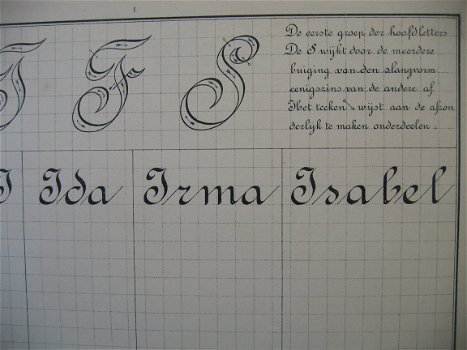 I F S
De eerste groep der hoofdletters
De S wijkt door de meerdere
buiging van den slangvorm
eenigszins van de andere af
Het teeken wijst aan de afzon
derlijk te maken onderdeelen.
I Ida Irma Isabel